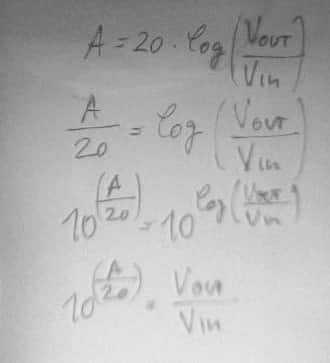 A = 20 · log(VOUT/VIN)
A/20 = log(VOUT/VIN)
10^(A/20) = 10^log(VOUT/VIN)
10^(A/20) = VOUT/VIN